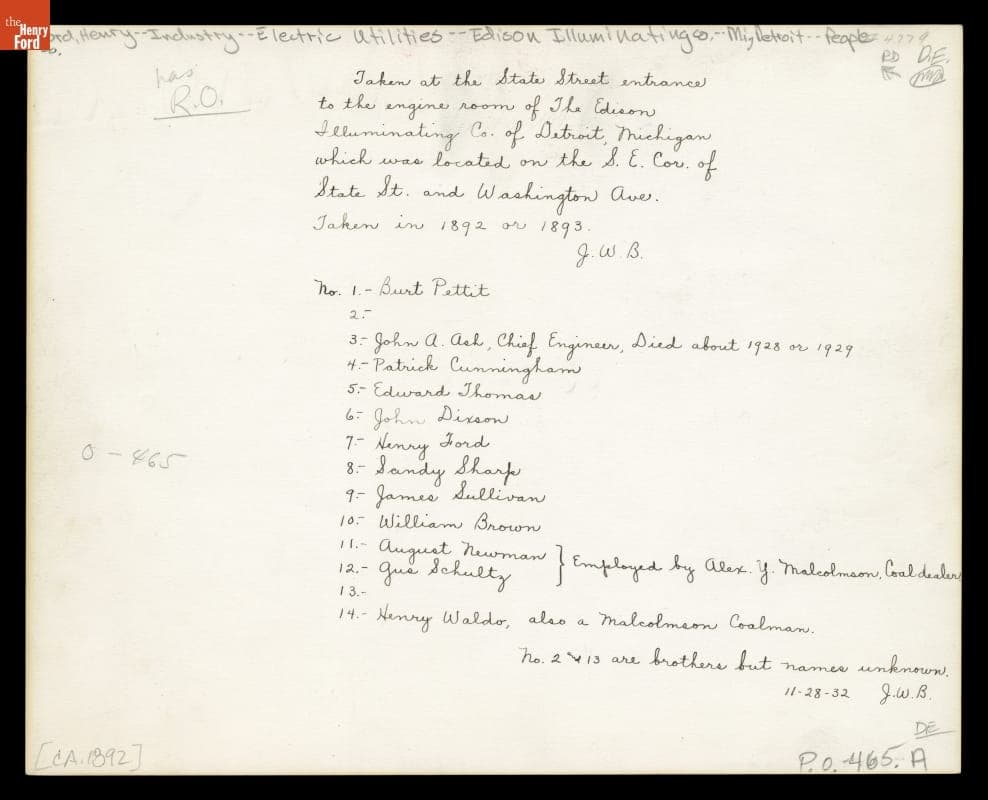 the
Henry
Ford
ord, Henry--Industry--Electric Utilities--Edison Illuminating Co.--Mi, Detroit--People
has
R.O.
D.E.
Taken at the State Street entrance
to the engine room of The Edison
Illuminating Co. of Detroit, Michigan
which was located on the S. E. Cor. of
State St. and Washington Ave.
Taken in 1892 or 1893.
J. W. B.
No. 1.- Burt Pettit
2.-
3.- John A. Ash, Chief Engineer, Died about 1928 or 1929
4.- Patrick Cunningham
5.- Edward Thomas
6.- John Dixson
7.- Henry Ford
8.- Sandy Sharp
9.- James Sullivan
10.- William Brown
11.- August Newman
12.- Gus Schultz
} Employed by Alex. Y. Malcolmson, Coal dealer
13.-
14.- Henry Waldo, also a Malcolmson Coalman.
No. 2 & 13 are brothers but names unknown.
11-28-32 J.W.B.
O - 465
DE
[CA.1892]
P.O.-465.A